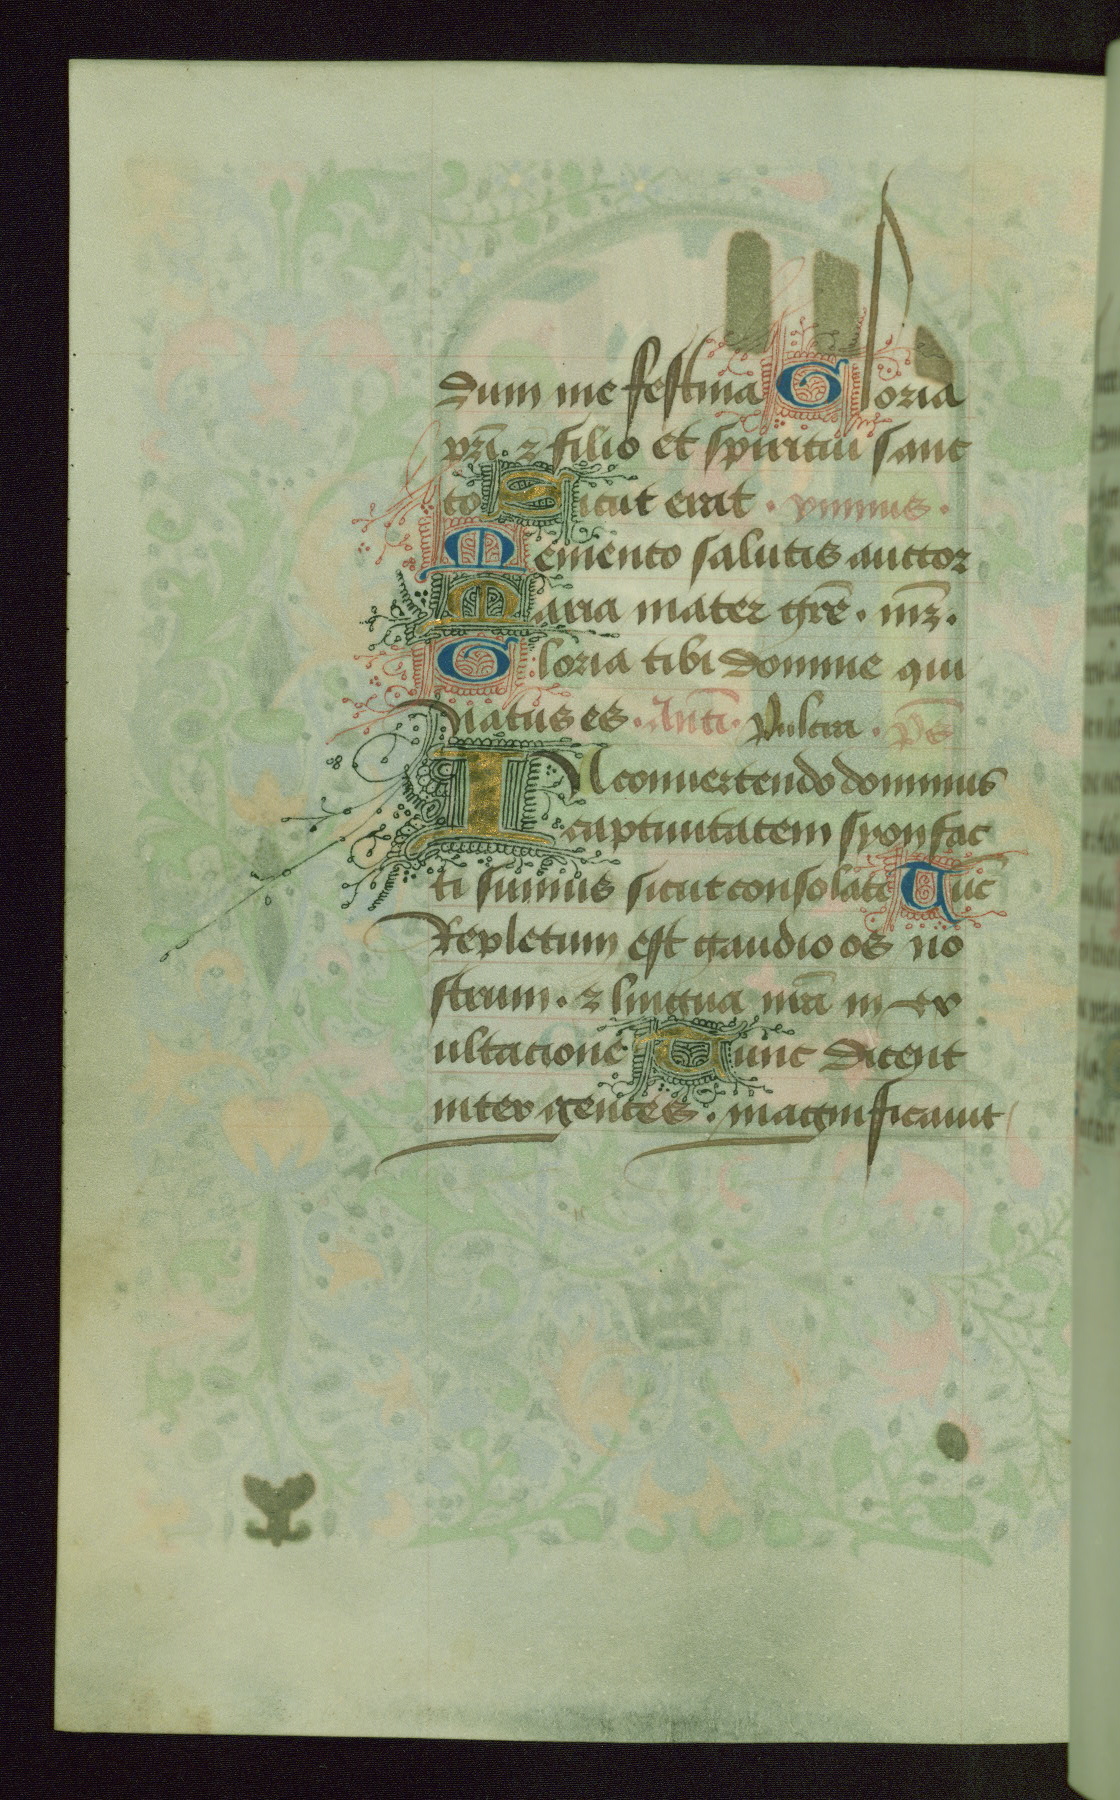 dum me festina Gloria
pri̅ ⁊ filio et spiritui sanc
to Sicut erat . ymnus .
Memento salutis auctor
Maria mater gre̅ . m̅z .
Gloria tibi domine qui
Natus es . Ant̅ . Pulcra . p̅s
IN convertendo dominus
captivitatem syon fac
ti sumus sicut consolati Tu̅c
Repletum est gaudio os no
strum . ⁊ lingua nr̅a in ex
ultacione Tunc dicent
inter gentes . magnificavit